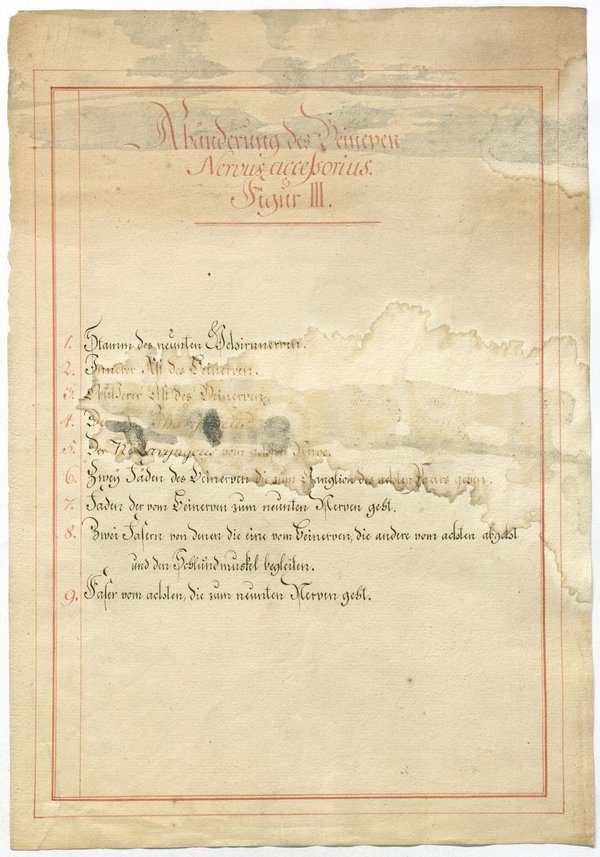 Abänderung des Beinerven
Nervus accessorius.
Figur III.
1. Stamm des neunten Gehirnnerven.
2. Innerer Ast des Beinerven.
3. Äußerer Ast des Beinerven.
4. Der
5. Der N. Laryngeus vom Nerve.
6. Zwey Fäden des Beinerven die zum Ganglion des achten Paars gehen.
7. Faden der vom Beinerven zum neunten Nerven geht.
8. Zwei Fasern von denen die eine vom Beinerven, die andere vom achten abgehst
und den Schlundmuskel begleiten.
9. Faser vom achten, die zum neunten Nerven geht.